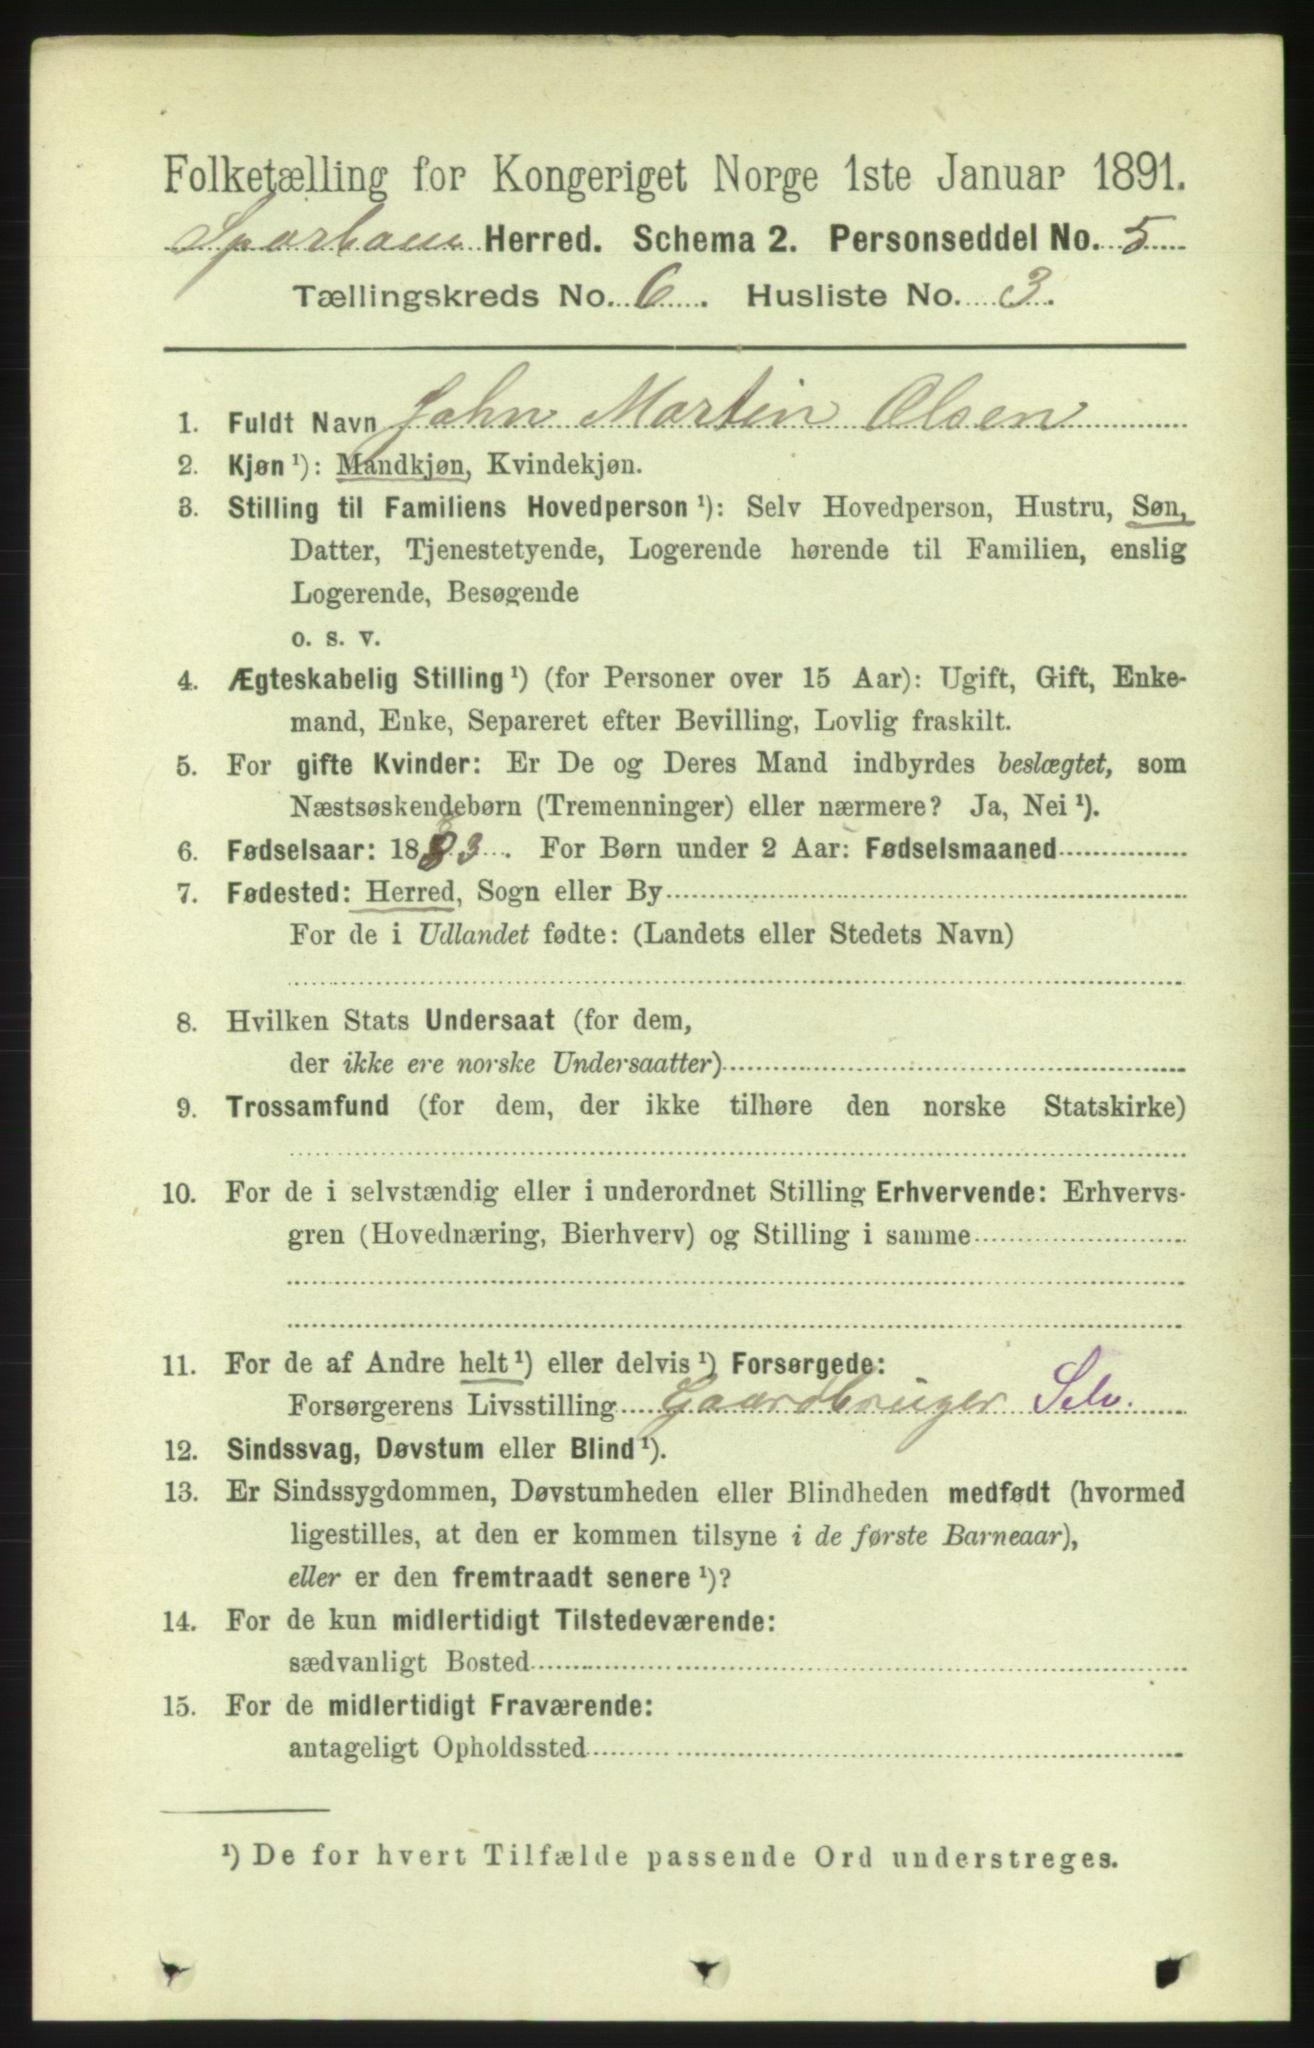 Folketælling for Kongeriget Norge 1ste Januar 1891.
Sparbau Herred. Schema 2. Personseddel No. 5
Tællingskreds No. 6. Husliste No. 3.
1. Fuldt Navn John Martin Olsen
2. Kjøn ¹): Mandkjøn, Kvindekjøn.
3. Stilling til Familiens Hovedperson ¹): Selv Hovedperson, Hustru, Søn,
Datter, Tjenestetyende, Logerende hørende til Familien, enslig
Logerende, Besøgende
o. s. v.
4. Ægteskabelig Stilling ¹) (for Personer over 15 Aar): Ugift, Gift, Enke-
mand, Enke, Separeret efter Bevilling, Lovlig fraskilt.
5. For gifte Kvinder: Er De og Deres Mand indbyrdes beslægtet, som
Næstsøskendebørn (Tremenninger) eller nærmere? Ja, Nei ¹).
6. Fødselsaar: 1883. For Børn under 2 Aar: Fødselsmaaned
7. Fødested: Herred, Sogn eller By
For de i Udlandet fødte: (Landets eller Stedets Navn)
8. Hvilken Stats Undersaat (for dem,
der ikke ere norske Undersaatter)
9. Trossamfund (for dem, der ikke tilhøre den norske Statskirke)
10. For de i selvstændig eller i underordnet Stilling Erhvervende: Erhvervs-
gren (Hovednæring, Bierhverv) og Stilling i samme
11. For de af Andre helt ¹) eller delvis ¹) Forsørgede:
Forsørgerens Livsstilling Gaardbruger Selv.
12. Sindssvag, Døvstum eller Blind ¹).
13. Er Sindssygdommen, Døvstumheden eller Blindheden medfødt (hvormed
ligestilles, at den er kommen tilsyne i de første Barneaar),
eller er den fremtraadt senere ¹)?
14. For de kun midlertidigt Tilstedeværende:
sædvanligt Bosted
15. For de midlertidigt Fraværende:
antageligt Opholdssted
¹) De for hvert Tilfælde passende Ord understreges.